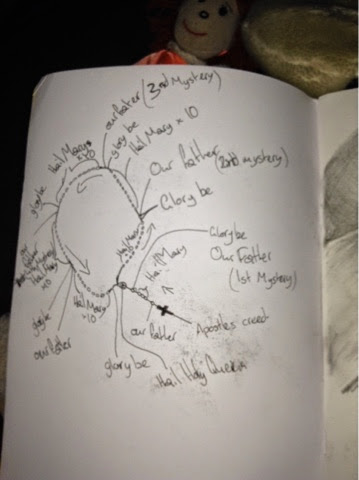 our Father (3rd Mystery)
glory be
Hail Mary × 10
Hail Mary
×10
Our Father (2nd mystery)
Glory be
Hail Mary
glory be
Hail Mary
×10
glory be
our Father
Hail Mary
×10
Glory be
Our Father
(1st Mystery)
Hail Mary
our Father
Apostles creed
glory be
Hail Holy Queen